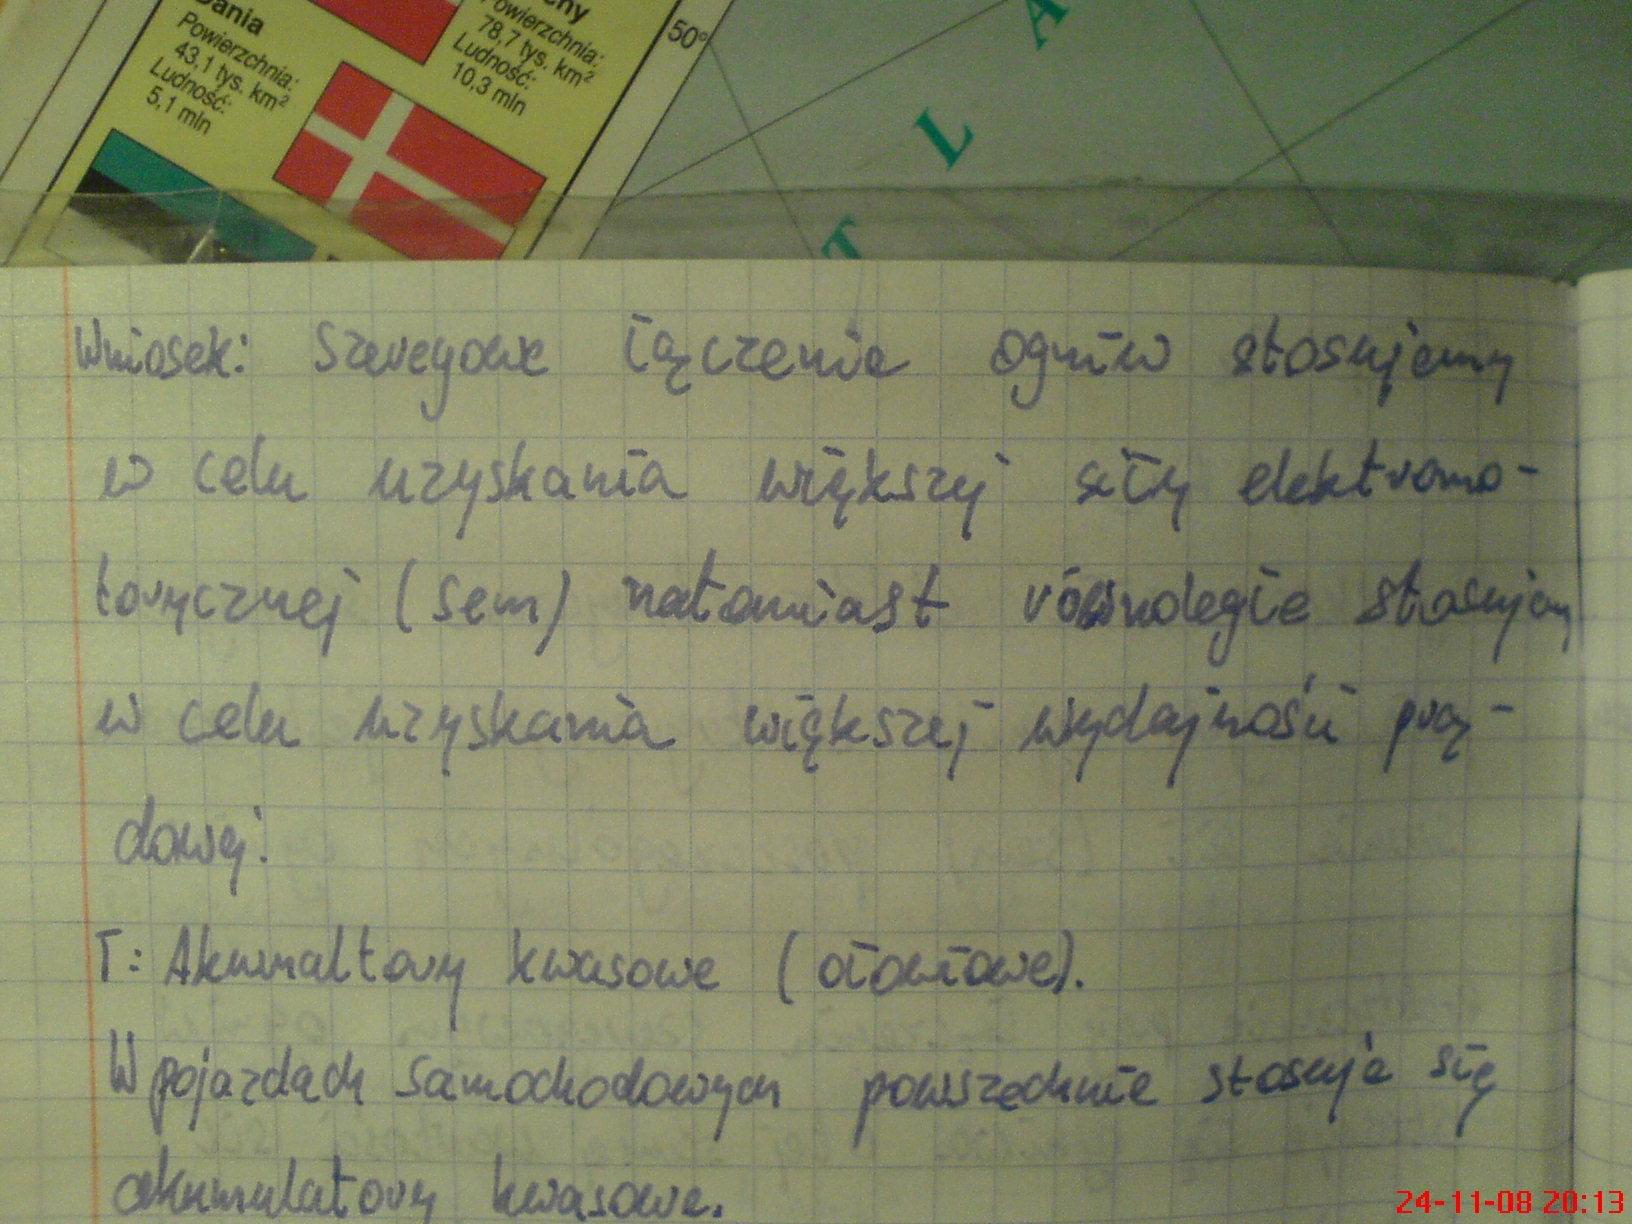 Dania
Powierzchnia:
43,1 tys. km²
Ludność:
5,1 mln
Powierzchnia:
78,7 tys. km²
Ludność:
10,3 mln
50°
A
L
T
Wniosek: Szeregowe łączenie ogniw stosujemy
w celu uzyskania większej siły elektromo-
torycznej (sem) natomiast równolegle stosujemy
w celu uzyskania większej wydajności prą-
dowej.
T: Akumaltory kwasowe (ołowiowe).
W pojazdach samochodowych powszechnie stosuje się
akumulatory kwasowe.
24-11-08 20:13